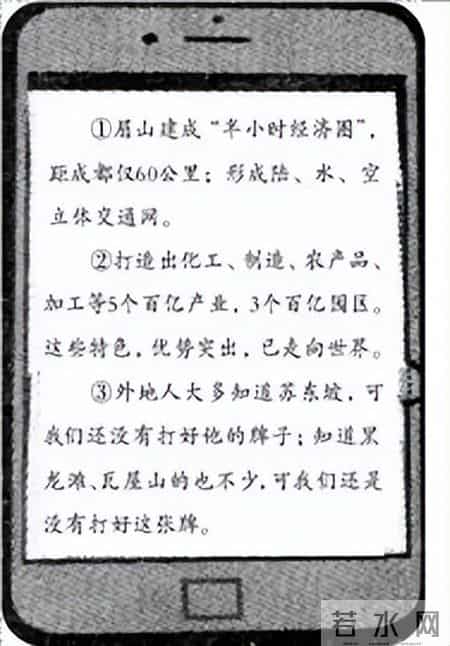 ①眉山建成“半小时经济圈”，
距成都仅60公里；形成陆、水、空
立体交通网。
②打造出化工、制造、农产品、
加工等5个百亿产业，3个百亿园区。
这些特色，优势突出，已走向世界。
③外地人大多知道苏东坡，可
我们还没有打好他的牌子；知道黑
龙滩、瓦屋山的也不少，可我们还是
没有打好这张牌。
若水网